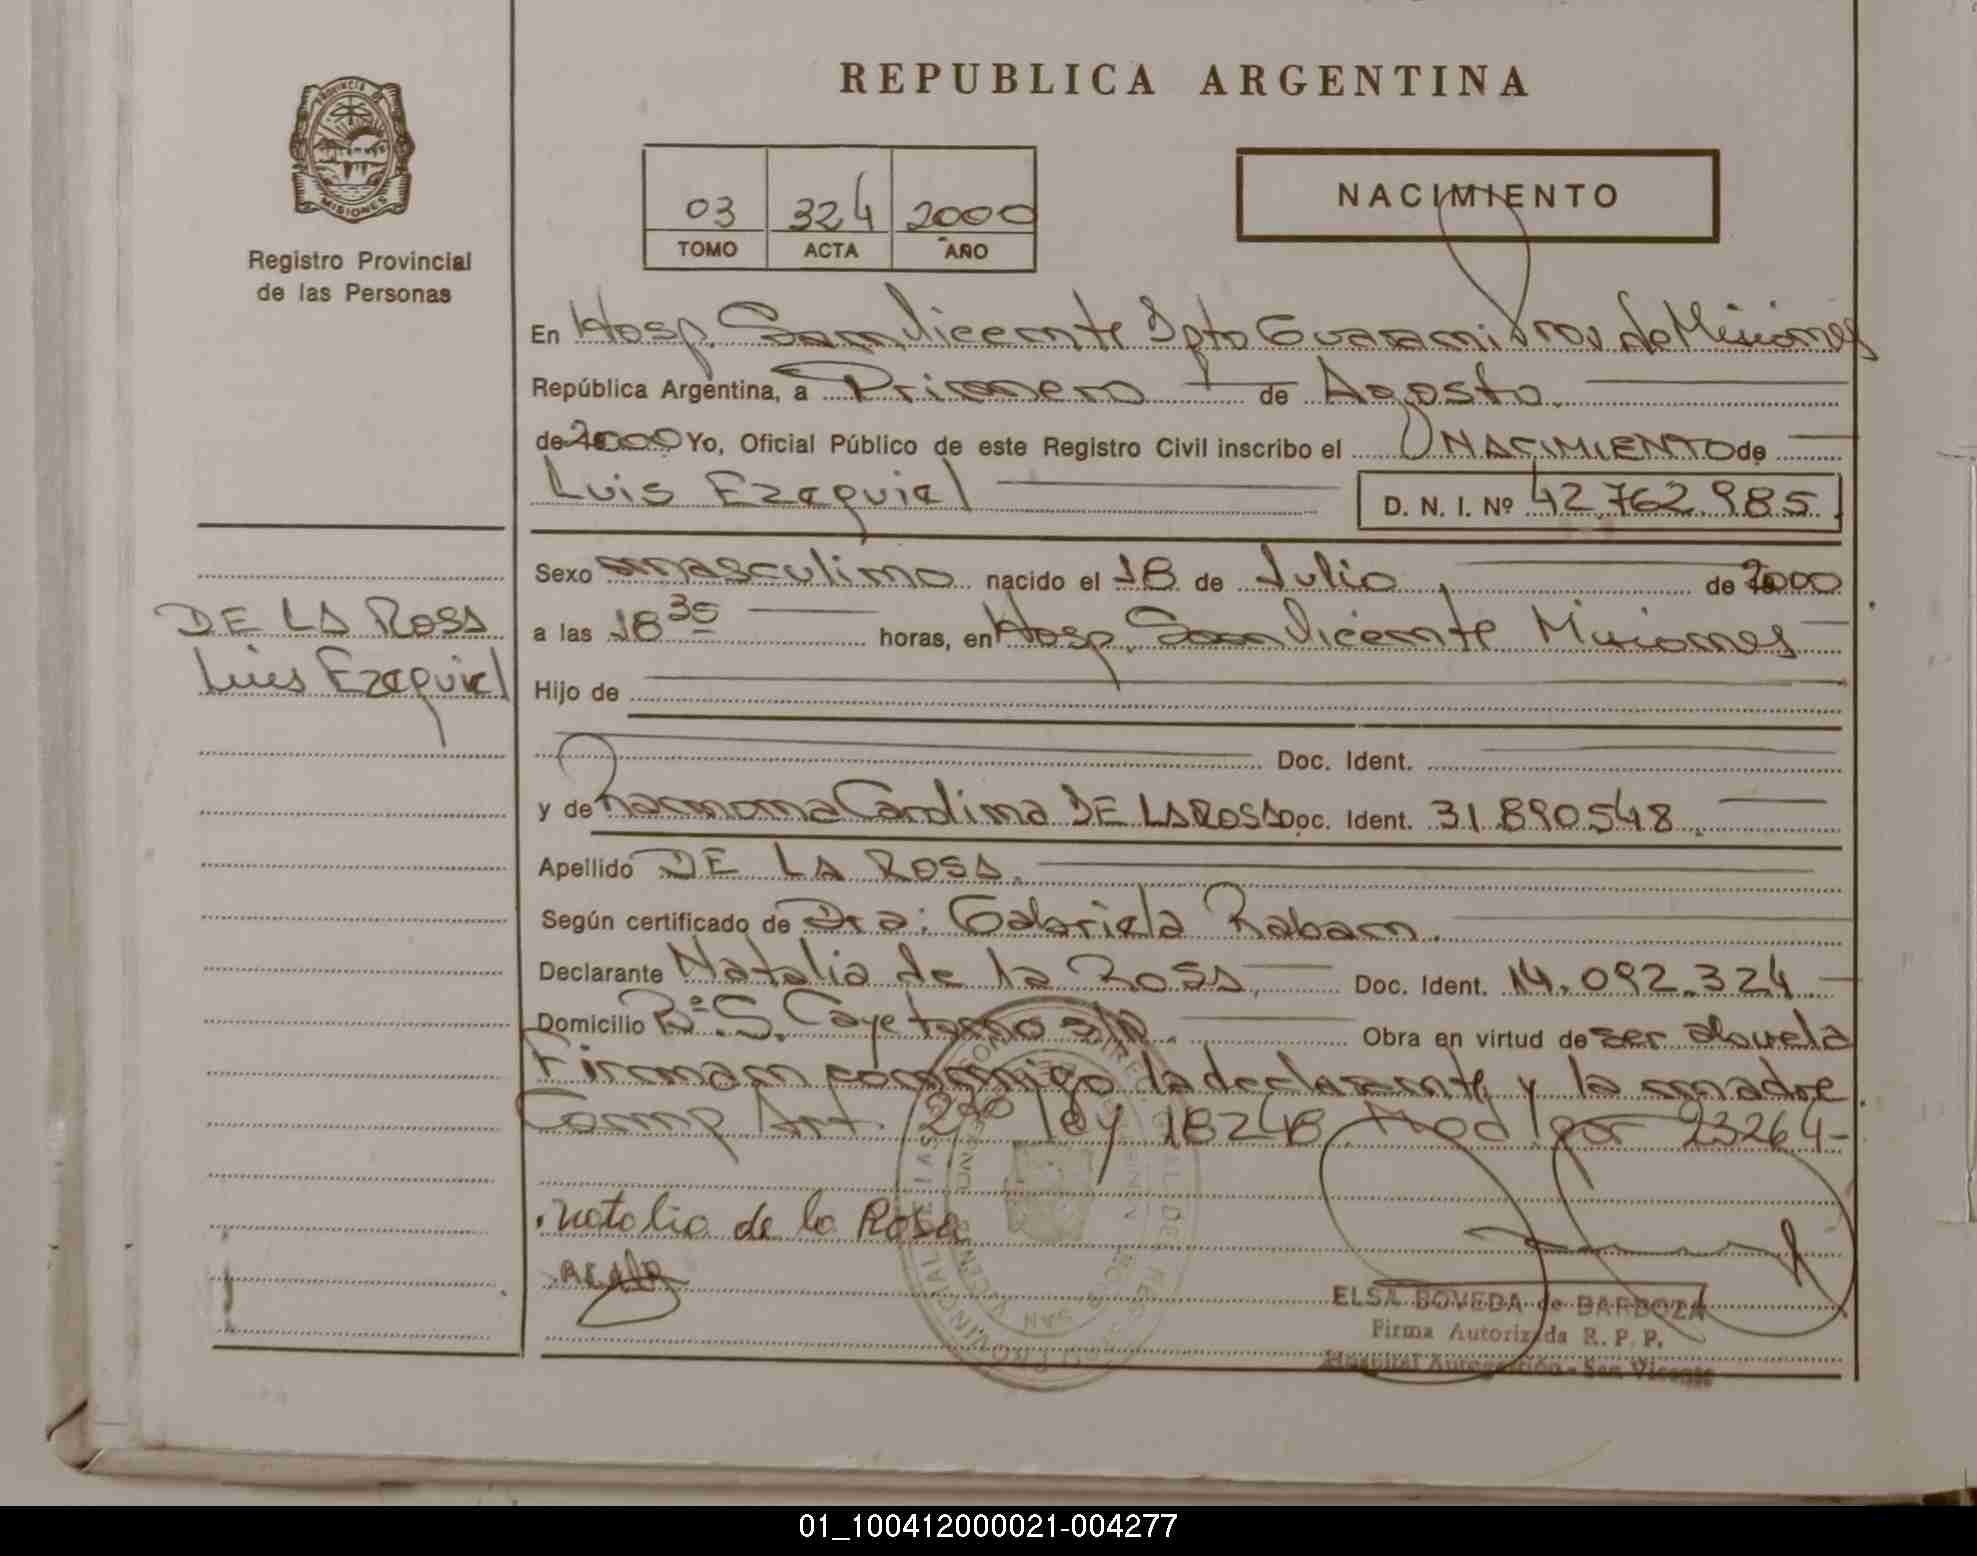 REPUBLICA ARGENTINA
PROVINCIA DE
MISIONES
Registro Provincial
de las Personas
03 324 2000
TOMO ACTA AÑO
NACIMIENTO
En Hosp. San Vicente Dpto Guarani Prov de Misiones
República Argentina, a Primero de Agosto
de 2000 Yo, Oficial Público de este Registro Civil inscribo el NACIMIENTO de
Luis Ezequiel D. N. I. Nº 42.762.985
Sexo masculino nacido el 18 de Julio de 2000
DE LA ROSA
Luis Ezequiel
a las 18 30 horas, en Hosp. San Vicente Misiones
Hijo de
Doc. Ident.
y de Ramona Carolina DE LA ROSA Doc. Ident. 31.890.548
Apellido DE LA ROSA.
Según certificado de Dra: Gabriela Raban.
Declarante Natalia de la Rosa Doc. Ident. 14.092.324
Domicilio Bº S. Cayetano s/n. Obra en virtud de ser abuela
Firman conmigo la declarante y la madre
Comp Art. 2do ley 18248 Mod por 23264-
Natalia de la Rosa
ELSA BOVEDA de BARBOZA
Firma Autorizada R. P. P.
Hospital Autogestión - San Vicente
01_100412000021-004277